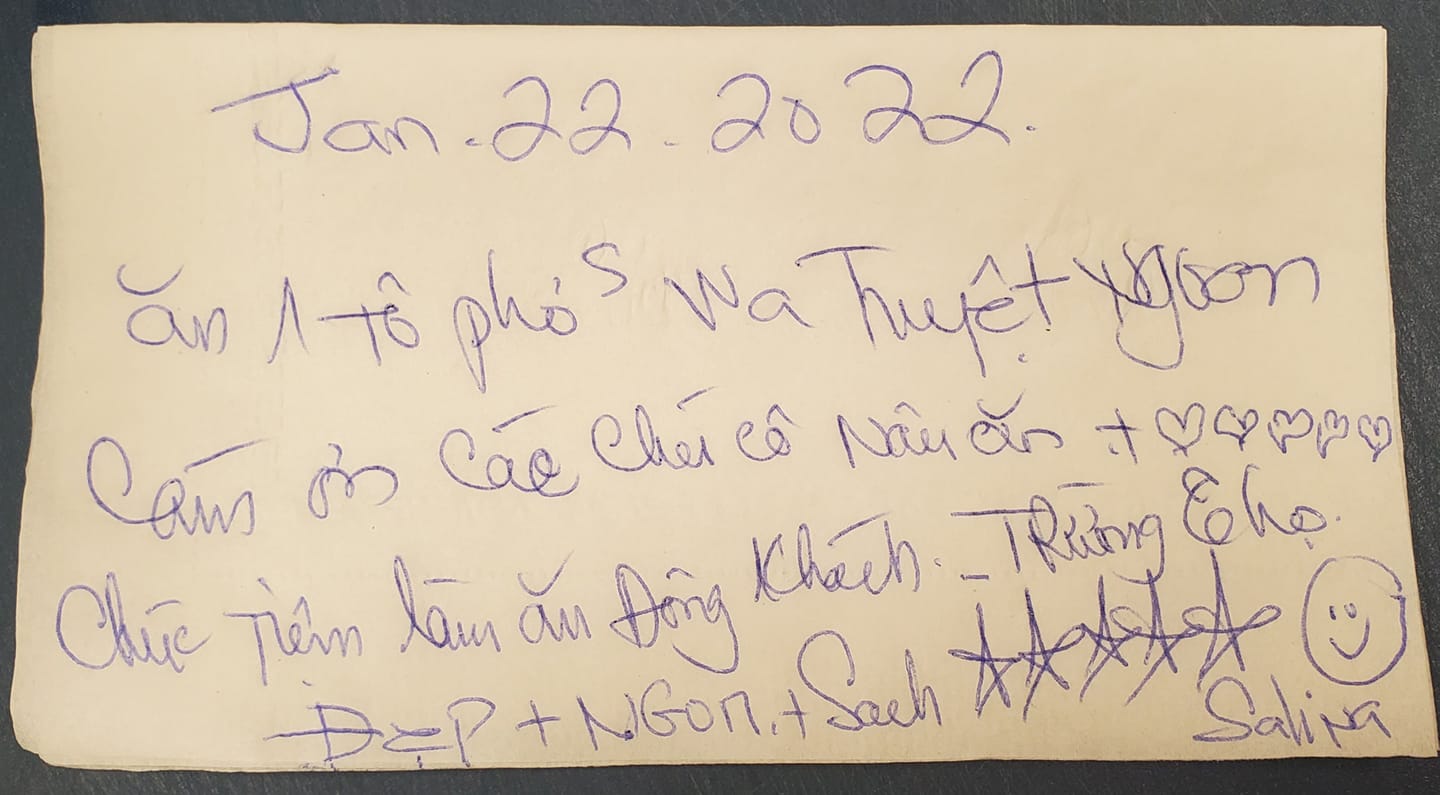 Jan. 22. 2022.
ăn 1 tô phở S wa Tuyệt Ngon
Cám ơn các chú cô Nấu ăn + ♡♡♡♡♡
Chúc Tiệm làm ăn Đông Khách. _ Trường Thọ.
ĐẸP + NGON. + Sạch ☆☆☆☆☆ ☺
Salina